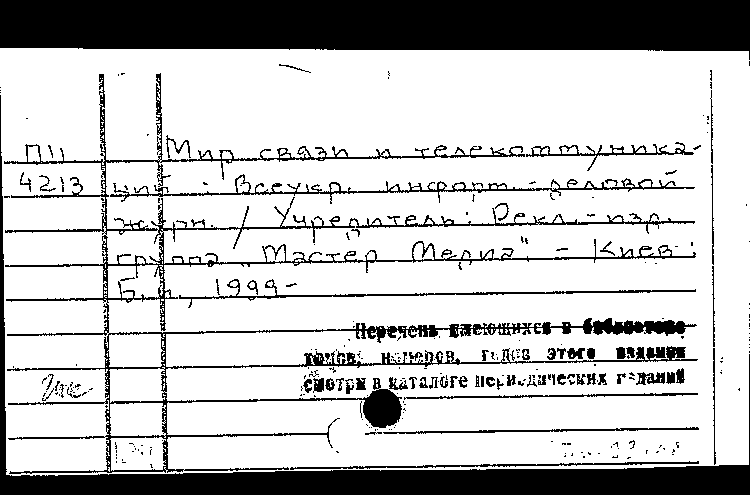 П11 Мир связи и телекоммуника-
4213 ций : Всеукр. информ.-деловой
журн. / Учредитель: Рекл.-изд.
группа „Мастер Медиа". - Киев :
Б.и., 1999-
Перечень имеющихся в библиотеке
томов, номеров, годов этого издания
смотри в каталоге периодических изданий